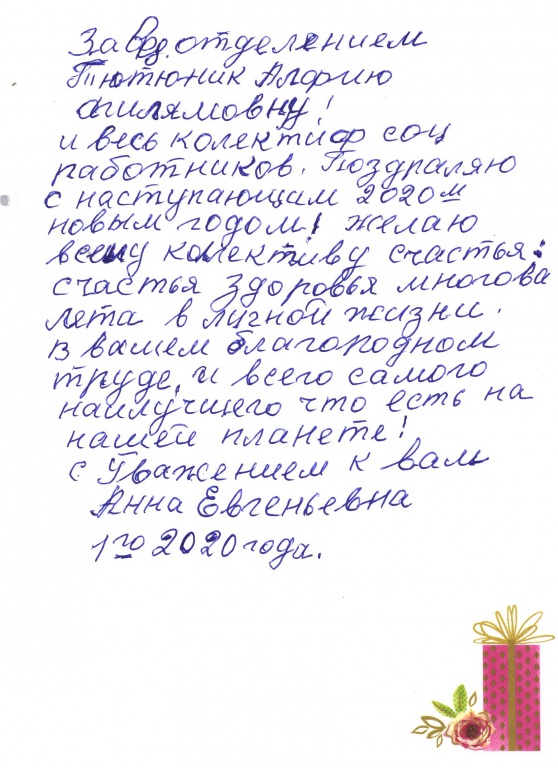 Зав отделением
Тютюник Алфию
Агилямовну!
и весь колектиф соц
работников. Поздраляю
с наступающим 2020м
новым годом! желаю
всему колективу счастья:
счастья здоровья многова
лета в личной жизни.
в вашем благородном
труде, и всего самого
наилучшего что есть на
нашей планете!
с Уважением к вам
Анна Евгеньевна
1го 2020 года.